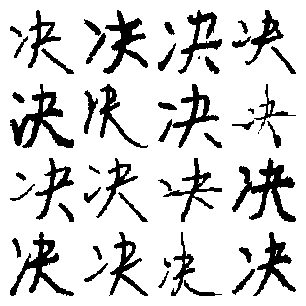 决决决决
决决决决
决决决决
决决决决